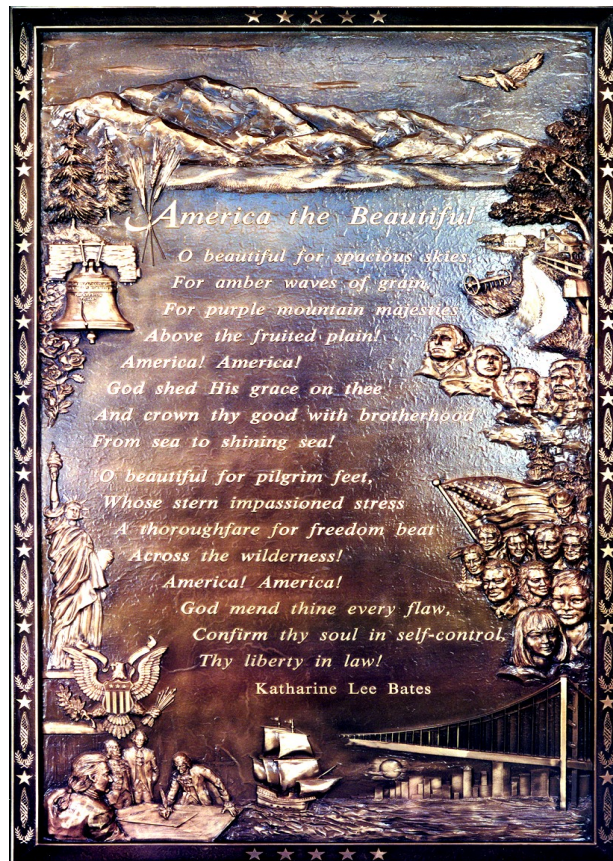 America the Beautiful
O beautiful for spacious skies,
For amber waves of grain,
For purple mountain majesties
Above the fruited plain!
America! America!
God shed His grace on thee
And crown thy good with brotherhood
From sea to shining sea!
O beautiful for pilgrim feet,
Whose stern impassioned stress
A thoroughfare for freedom beat
Across the wilderness!
America! America!
God mend thine every flaw,
Confirm thy soul in self-control,
Thy liberty in law!
Katharine Lee Bates